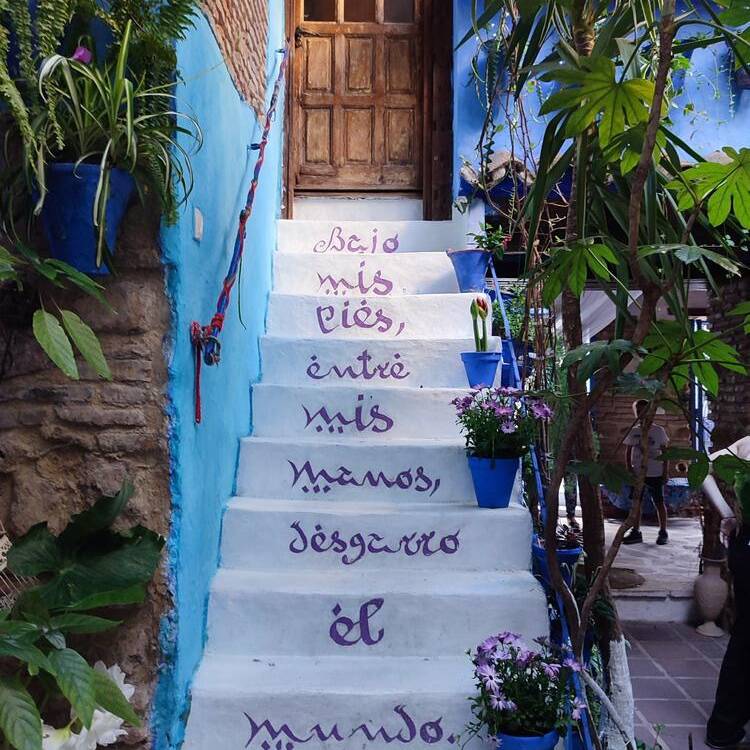 Bajo
mis
piés,
éntré
mis
manos,
désgarro
él
mundo.